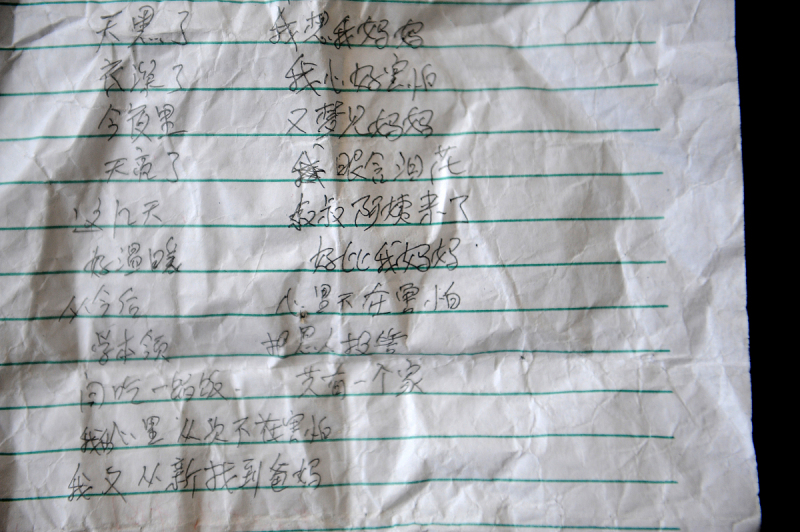 天黑了 我想我妈妈
夜深了 我心好害怕
今夜里 又梦见妈妈
天亮了 我眼含泪花
这几天 叔叔阿姨来了
好温暖 好比我妈妈
从今后 心里不在害怕
学本领 把恩人报答
同吃一锅饭 共有一个家
我心里从次不在害怕
我又从新找到爸妈